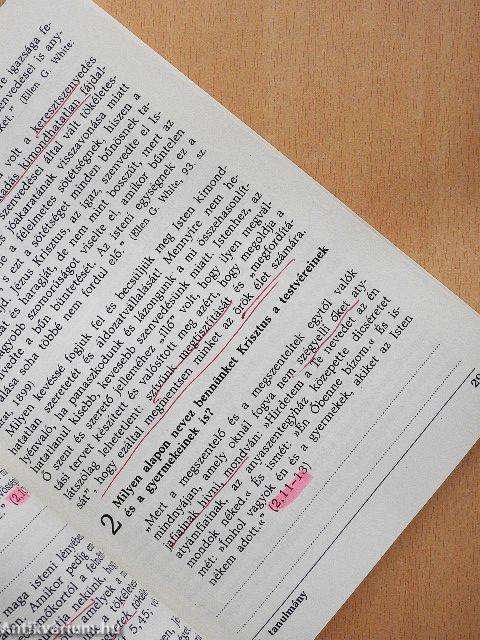 re igazsága fe-
nvedései is any-
(Ellen G. White:
volt a keresztszenvedés
adás kimondhatatlan fájdal-
szenvedései által vált tökéletes-
jóakaratának visszavonása miatt
félelmetes sötétségnek, hiszen a
s ezt a sötétséget minden bűnösnek ta-
Jézus Krisztus, az igaz, szenvedte el Is-
át és haragját, de nem mint bosszút, mert az
agyobb szomorúságot viselte el, amikor bűntelen
nvedte a bűn büntetését. Az isteni egységnek ez a
alása soha többé nem fordul elő." (Ellen G. White, 93. sz.
rat, 1899)
Milyen kevéssé fogjuk fel és becsüljük meg Isten kimond-
hatatlan szeretetét és áldozatvállalását! Mennyire nem he-
lyénvaló, ha panaszkodunk és lázongunk a mi összehasonlít-
hatatlanul kisebb, kevesebb szenvedésünk miatt Istenhez, az
Ő szent és szerető jelleméhez „illő" volt, hogy ilyen megvál-
tási tervet készített és valósított meg azért, hogy megoldja a
látszólag lehetetlent: szívünk megtisztítását és „megfordítá-
sát", hogy ezáltal megmentsen minket az örök élet számára.
2 Milyen alapon nevez bennünket Krisztus a testvéreinek
és a gyermekeinek is?
„Mert a megszentelő és a megszenteltek egytől valók
mindnyájan, amely oknál fogva nem szégyelli őket aty-
jafiainak hívni, mondván: »Hirdetem a Te nevedet az én
atyámfiainak, az anyaszentegyház közepette dicséretet
mondok néked.« És ismét: »Én Őbenne bízom.« És is-
mét: »Imhol vagyok én és a gyermekek, akiket az Isten
nékem adott.«" (2,11–13)
20
tanulmány
(2,1
maga isteni lénye
Amikor pedig
őkortól a
nekünk,
5, 45;
Antikvarium.hu